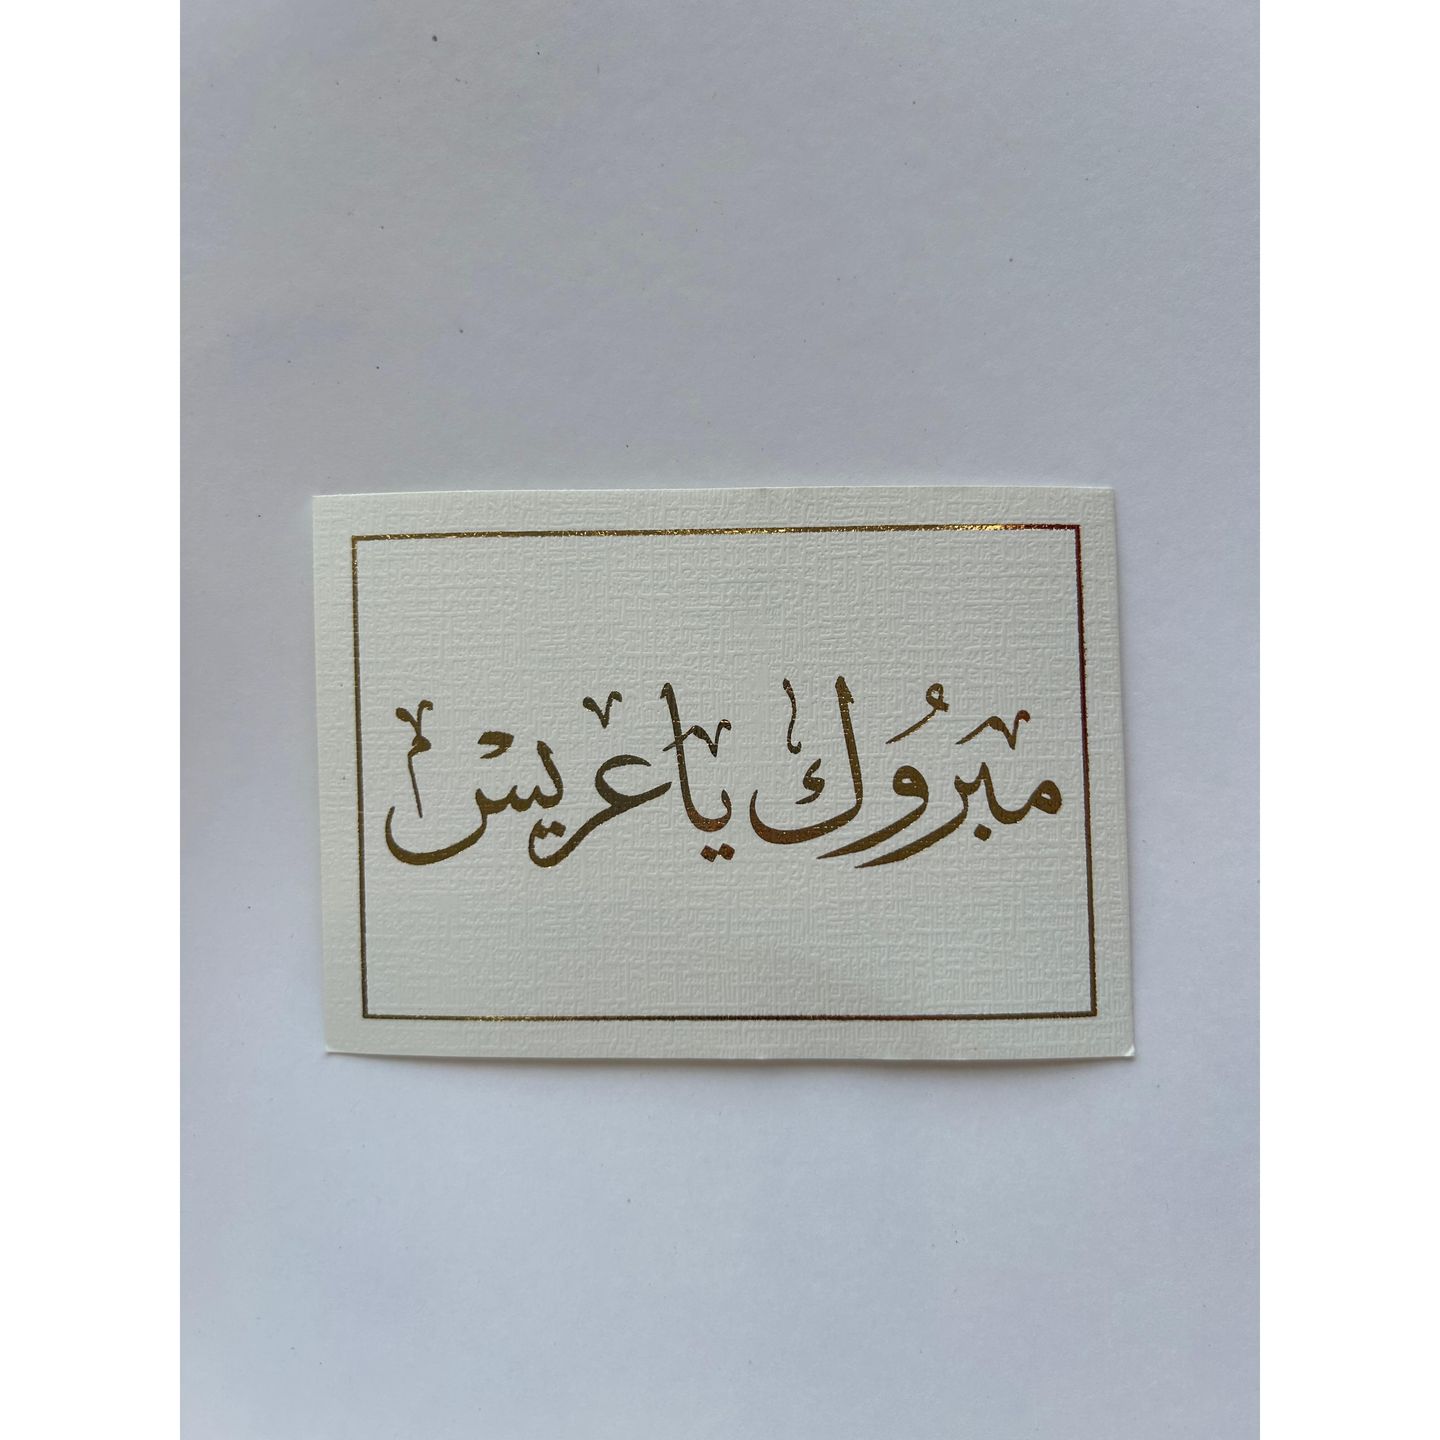 مبرُوك يا عريس